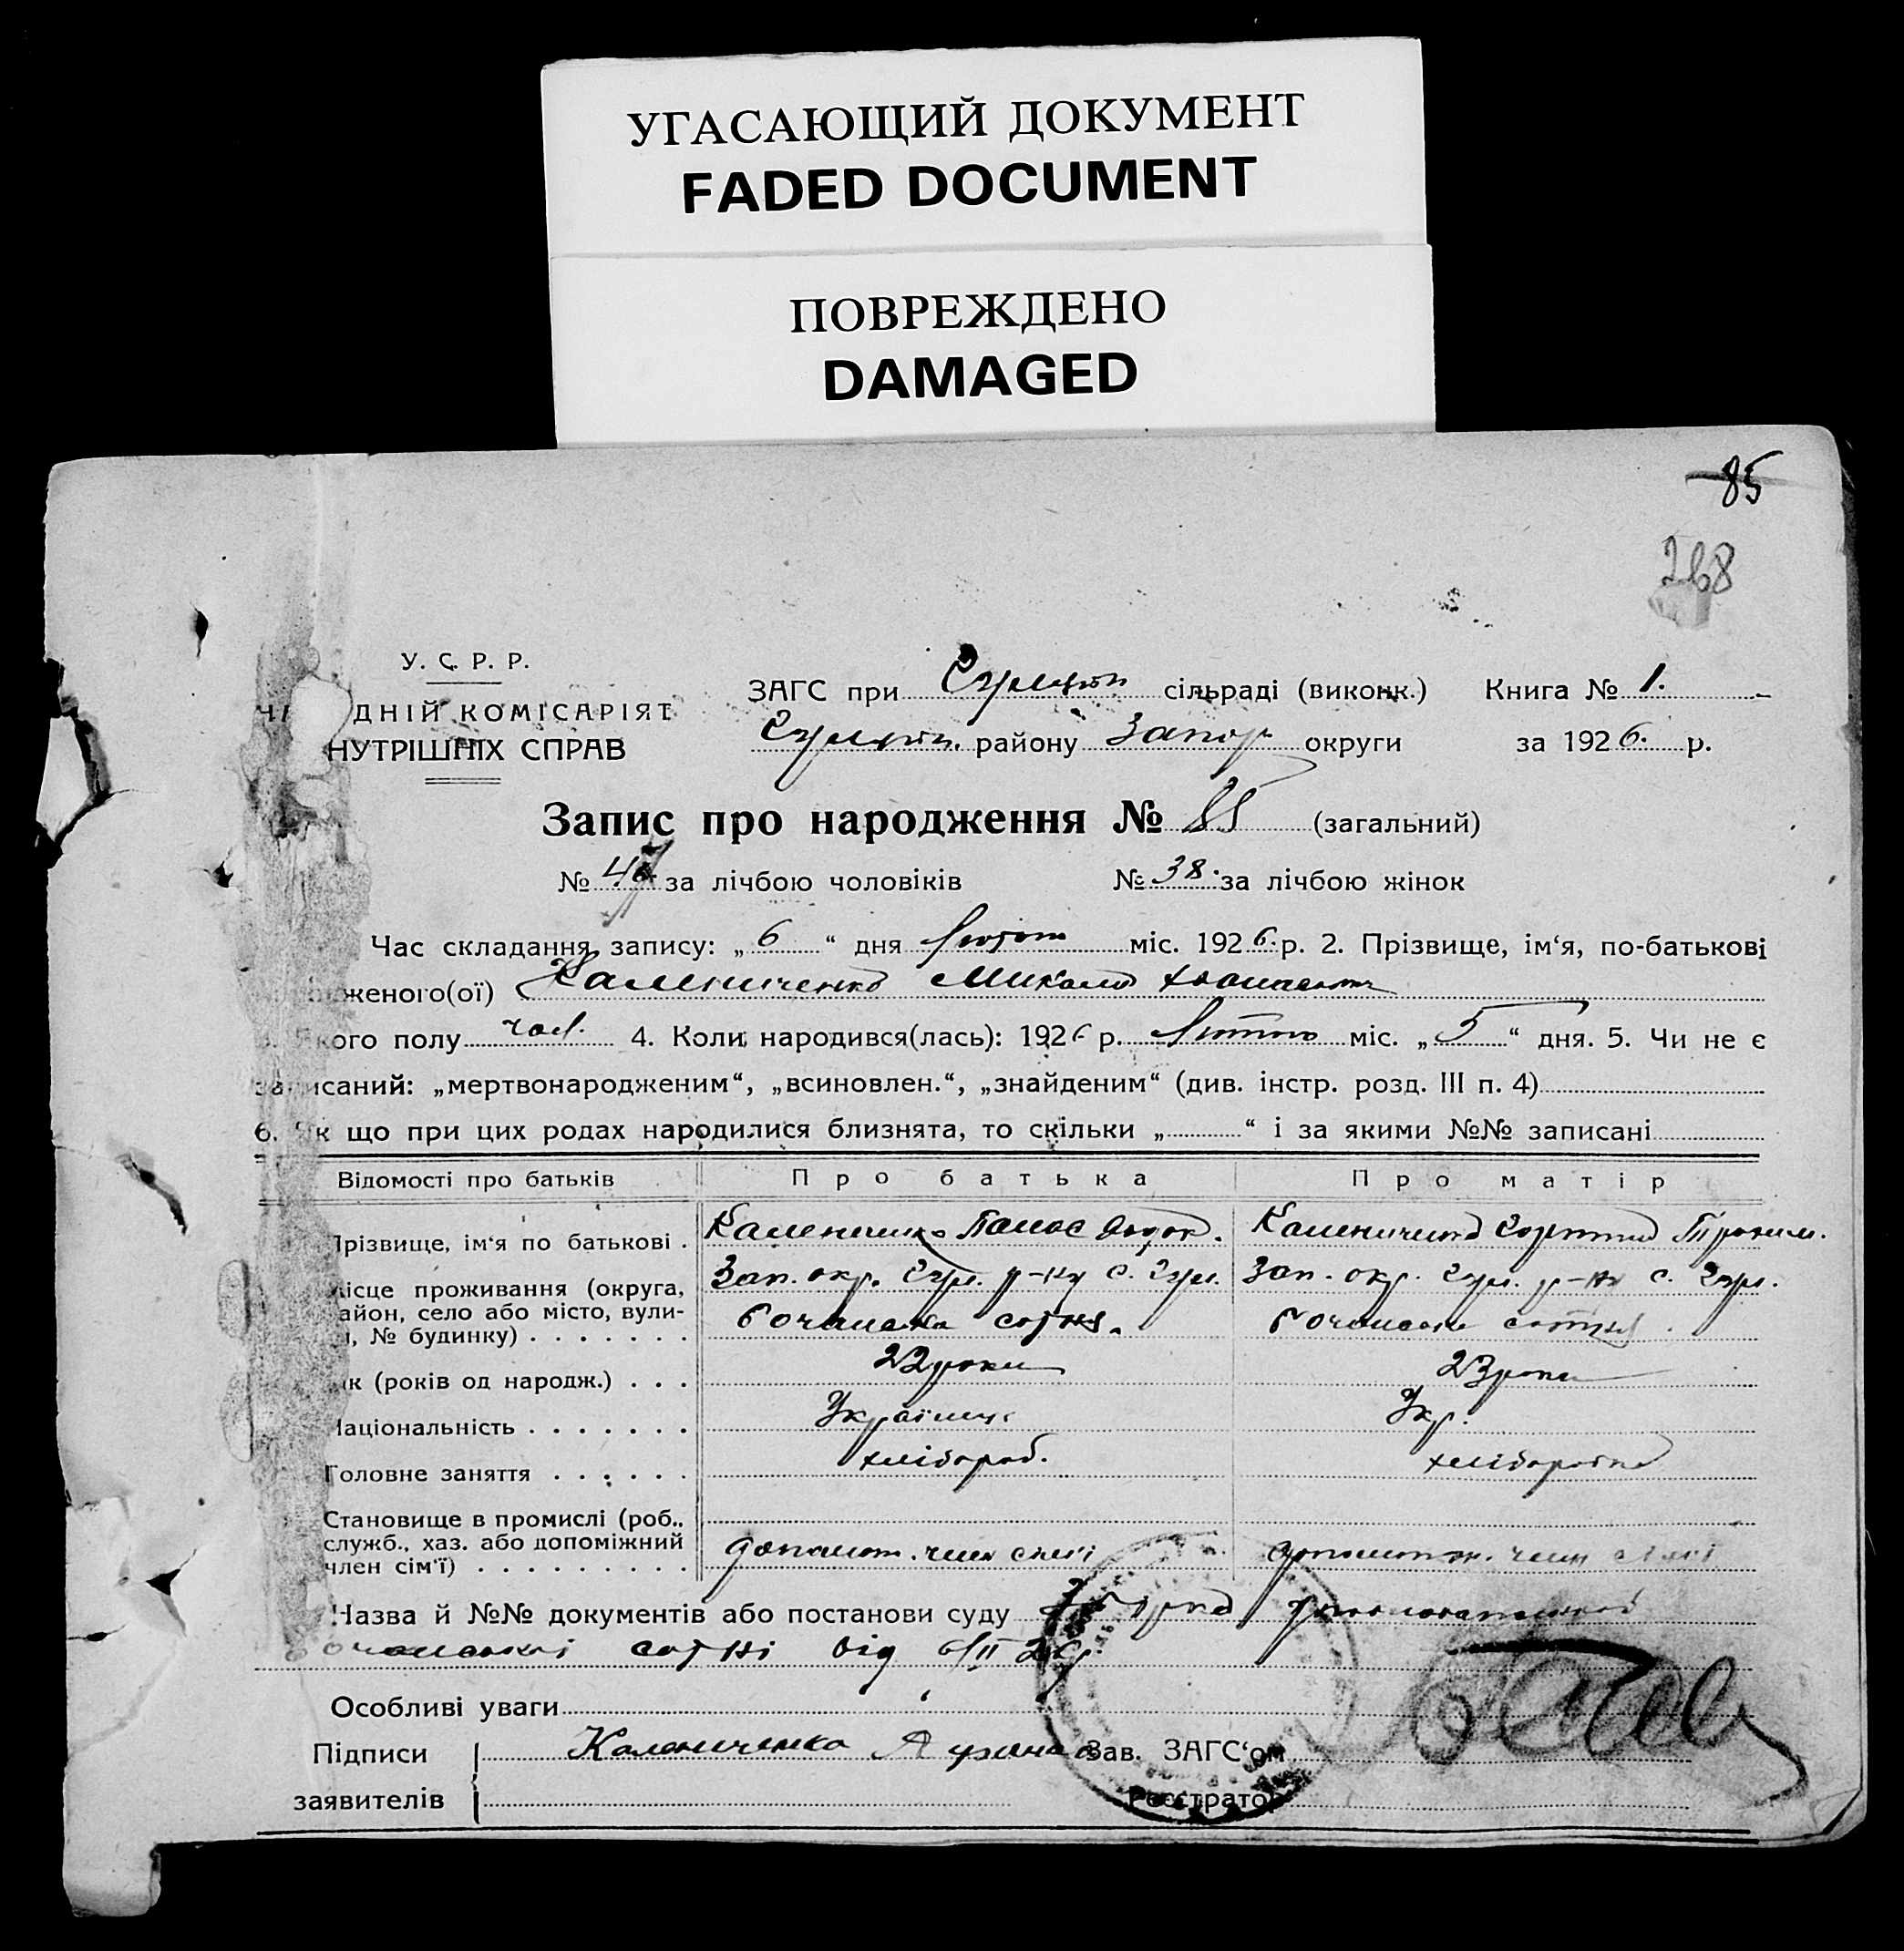 УГАСАЮЩИЙ ДОКУМЕНТ
FADED DOCUMENT
ПОВРЕЖДЕНО
DAMAGED
85
268
У. С. Р. Р.
ДНІЙ КОМІСАРІЯТ
НУТРІШНІХ СПРАВ
ЗАГС при сільраді (виконк.) Книга № 1.
району Запор округи за 1926. р.
Запис про народження № 85 (загальний)
№ 47 за лічбою чоловіків № 38. за лічбою жінок
Час складання запису: „ 6 “ дня Лютого міс. 1926. р. 2. Прізвище, ім‘я, по-батькові
женого(ої) Калениченко Микола
кого полу чол. 4. Коли народився(лась): 1926 р. Лютого міс. „ 5 “ дня. 5. Чи не є
записаний: „мертвонародженим“, „всиновлен.“, „знайденим“ (див. інстр. розд. III п. 4)
6. Як що при цих родах народилися близнята, то скільки „ “ і за якими №№ записані
Відомості про батьків Про батька Про матір
Прізвище, ім‘я по батькові . Калениченко Панас Калениченко Трохим.
Місце проживання (округа, Зап. окр. р-ну с. Зап. окр. р-ну с.
район, село або місто, вули-
, № будинку) . . . . . . . сотня. сотня.
ік (років од народж.) . . . 22 роки 23 роки
Національність . . . . . . . Українець Укр.
Головне заняття . . . . . . хлібороб. хліборобка
Становище в промислі (роб.,
служб., хаз. або допоміжний
член сім‘ї) . . . . . . . . . допомож. член сімї допоможн. член сімї
Назва й №№ документів або постанови суду
сотні від 6/II 26 р.
Особливі уваги
Підписи Калениченко Зав. ЗАГС‘ом
заявителів Реєстратор